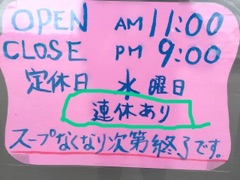 OPEN AM 11:00
CLOSE PM 9:00
定休日 水曜日
連休あり
スープなくなり次第終了です。